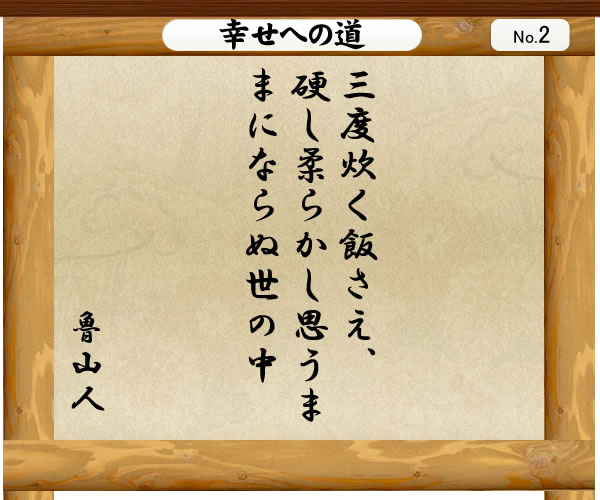 幸せへの道
No.2
三度炊く飯さえ、
硬し柔らかし思うま
まにならぬ世の中
魯山人